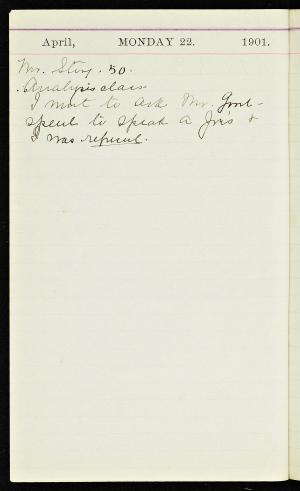 April, MONDAY 22. 1901.
Mr. Story. 50.
Analysis class
I went to ask Mr.
to speak a &
I was refused.